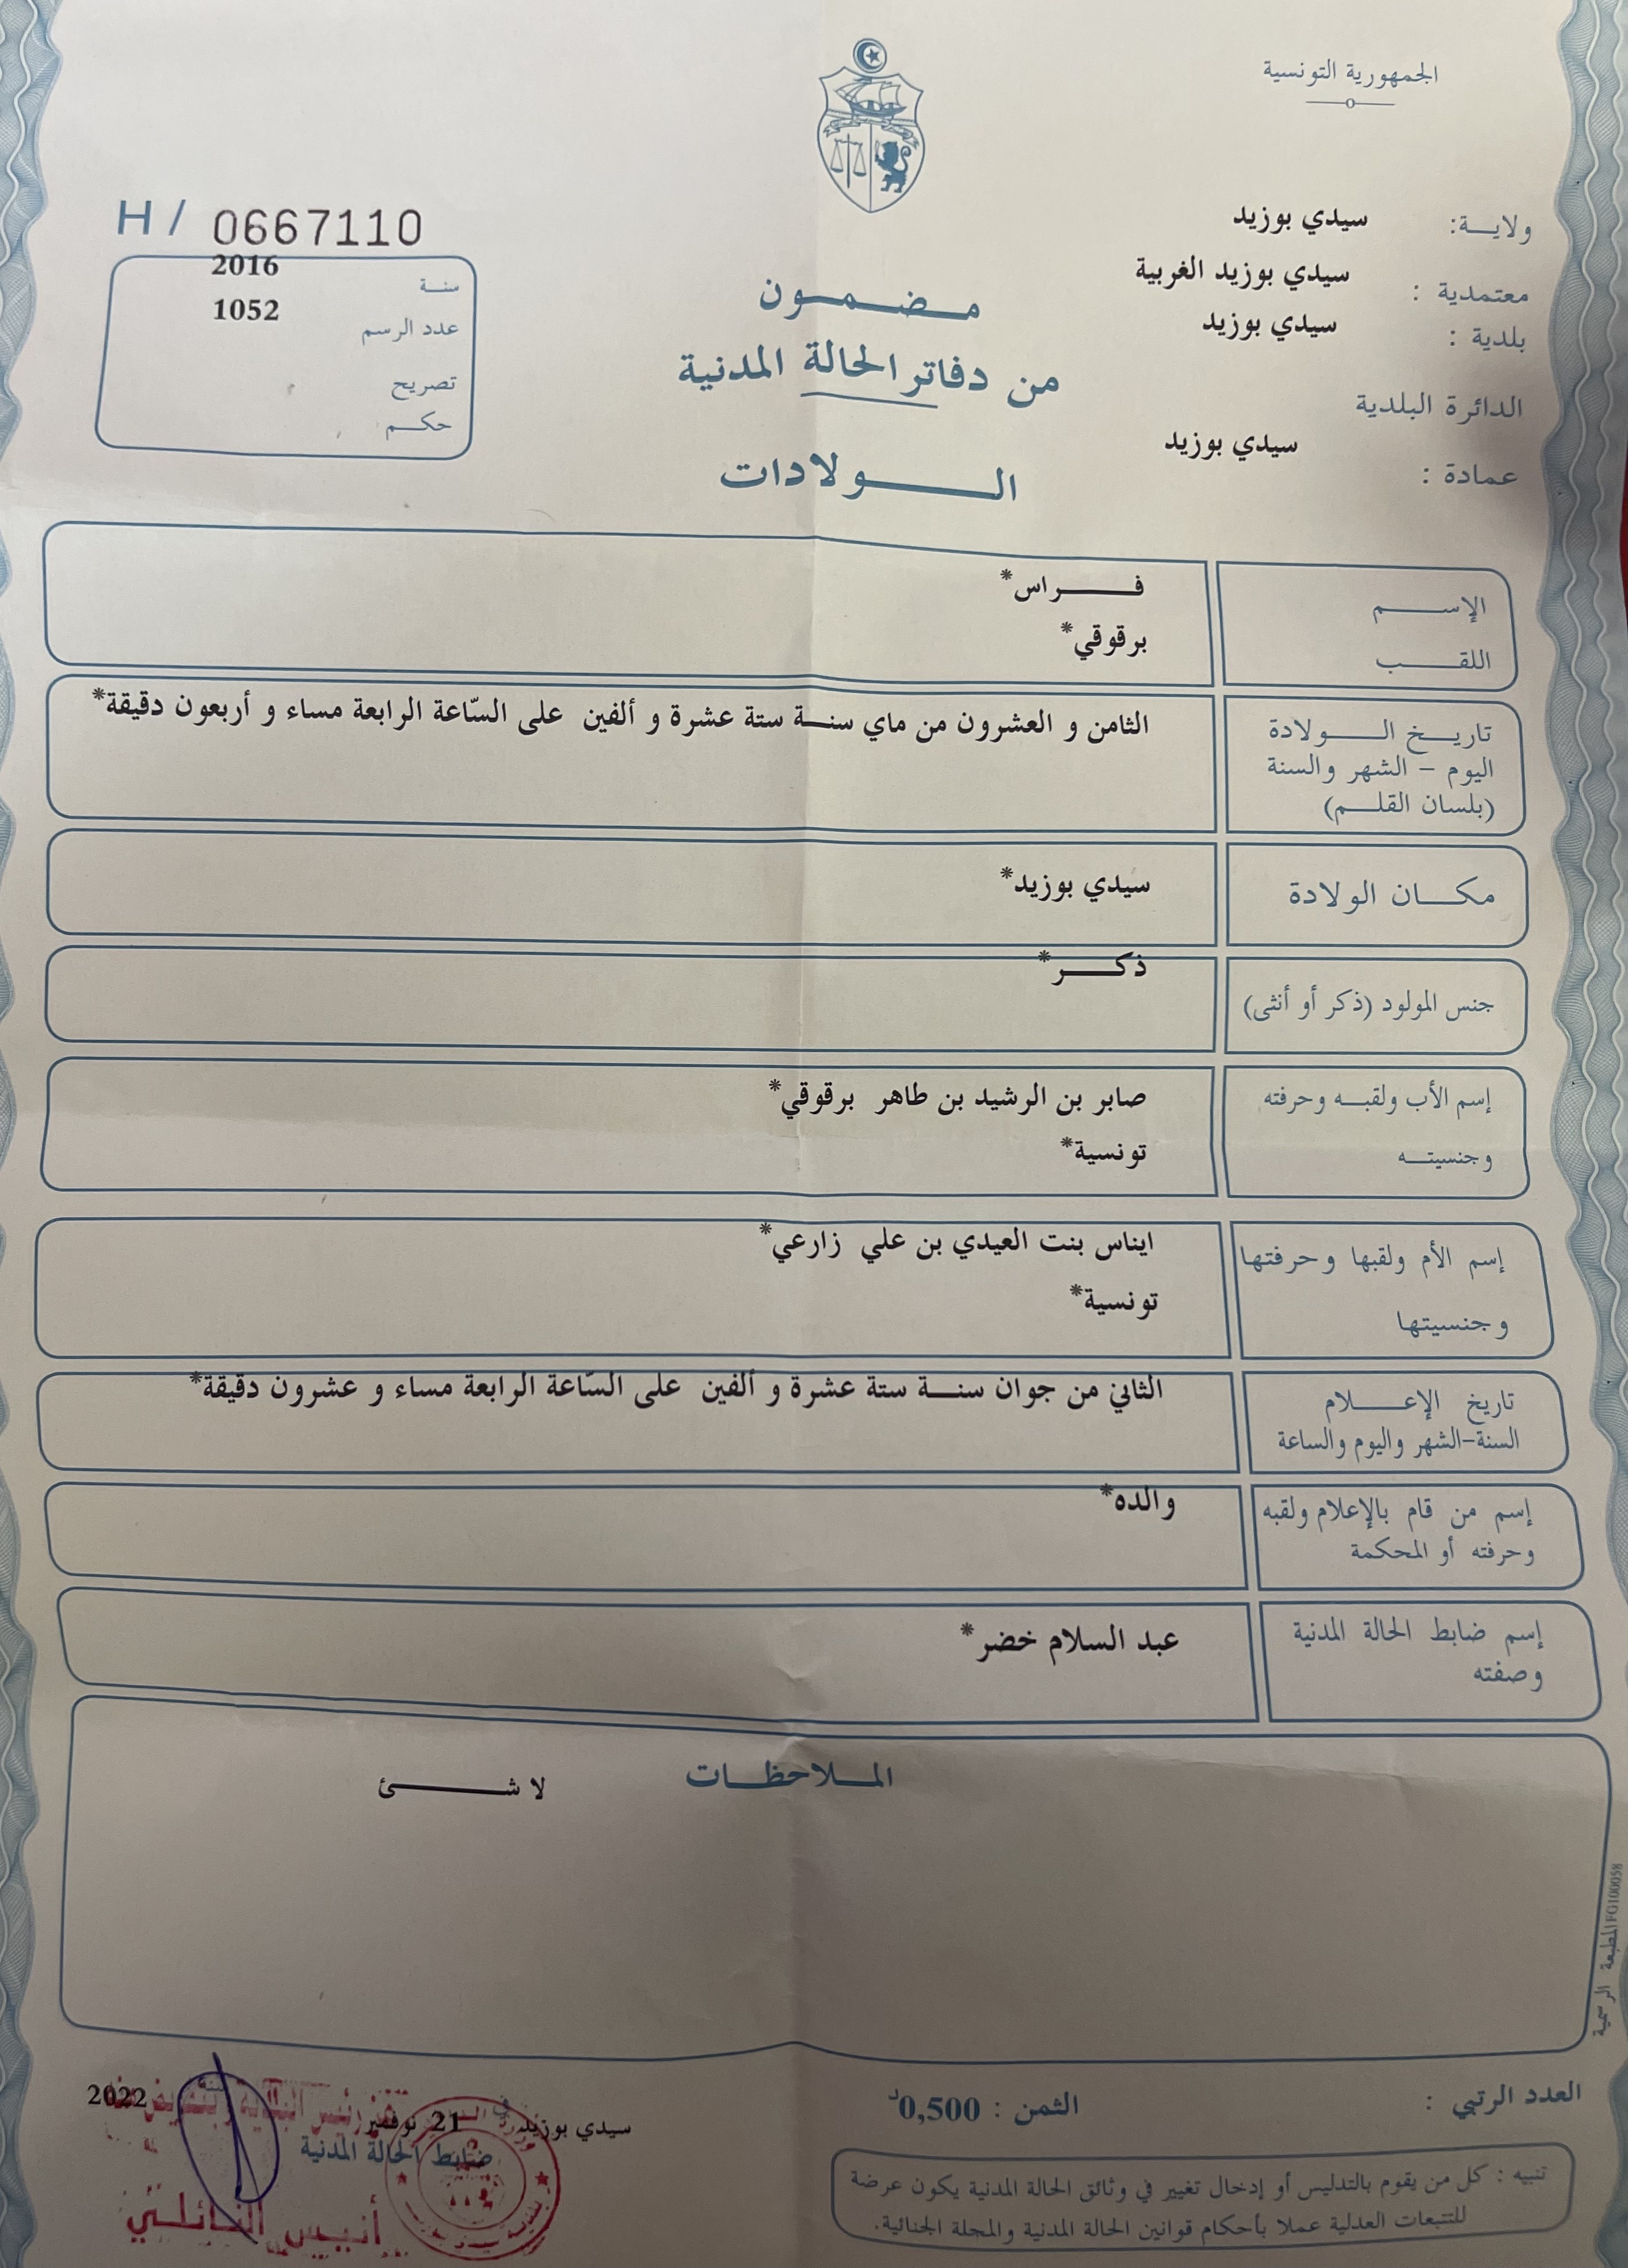 الجمهورية التونسية
ولاية: سيدي بوزيد
معتمدية : سيدي بوزيد الغربية
بلدية : سيدي بوزيد
الدائرة البلدية
عمادة : سيدي بوزيد
H / 0667110
سنة 2016
عدد الرسم 1052
تصريح
حكم
مضمون
من دفاتر الحالة المدنية
الولادات
الإسم فراس*
اللقب برقوقي*
تاريخ الولادة الثامن و العشرون من ماي سنة ستة عشرة و ألفين على السّاعة الرابعة مساء و أربعون دقيقة*
اليوم - الشهر والسنة
(بلسان القلم)
مكان الولادة سيدي بوزيد*
جنس المولود (ذكر أو أنثى) ذكر*
إسم الأب ولقبه وحرفته صابر بن الرشيد بن طاهر برقوقي*
وجنسيته تونسية*
إسم الأم ولقبها وحرفتها ايناس بنت العيدي بن علي زارعي*
وجنسيتها تونسية*
تاريخ الإعلام الثاني من جوان سنة ستة عشرة و ألفين على السّاعة الرابعة مساء و عشرون دقيقة*
السنة-الشهر واليوم والساعة
إسم من قام بالإعلام ولقبه والده*
وحرفته أو المحكمة
إسم ضابط الحالة المدنية عبد السلام خضر*
وصفته
الملاحظات
لا شئ
المطبعة الرسمية FG100058
العدد الرتبي :
الثمن : 0,500د
سيدي بوزيد في 21 نوفمبر سنة 2022
ضابط الحالة المدنية
أنيس النائلي
تنبيه : كل من يقوم بالتدليس أو إدخال تغيير في وثائق الحالة المدنية يكون عرضة
للتتبعات العدلية عملا بأحكام قوانين الحالة المدنية والمجلة الجنائية.